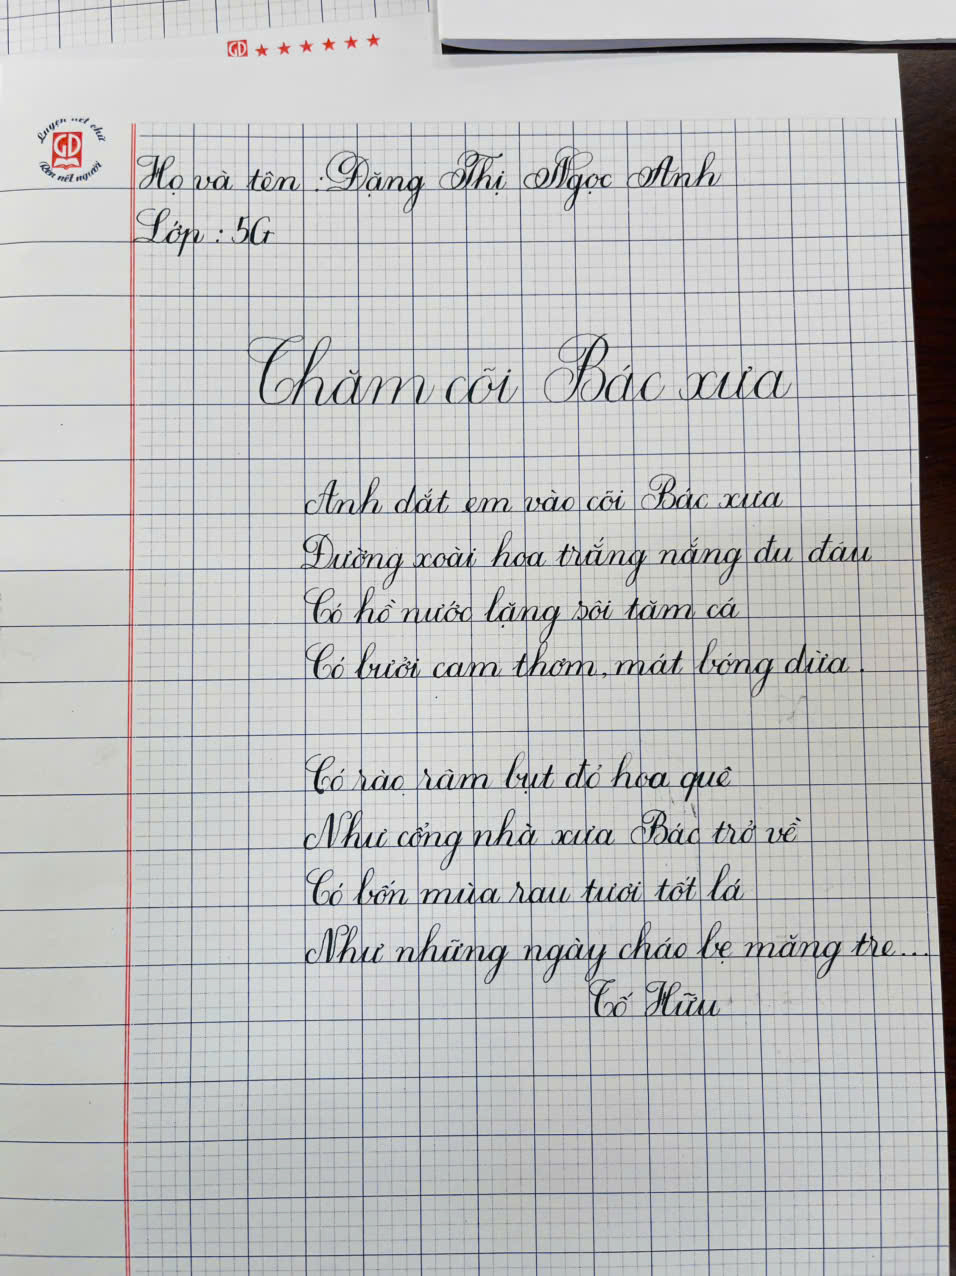 Luyện nét chữ
GD
Rèn nết người
GD
Họ và tên : Đặng Thị Ngọc Anh
Lớp : 5G
Thăm cõi Bác xưa
Anh dắt em vào cõi Bác xưa
Đường xoài hoa trắng nắng đu đưa
Có hồ nước lặng sôi tăm cá
Có bưởi cam thơm, mát bóng dừa.
Có rào râm bụt đỏ hoa quê
Như cổng nhà xưa Bác trở về
Có bốn mùa rau tươi tốt lá
Như những ngày cháo bẹ măng tre...
Tố Hữu